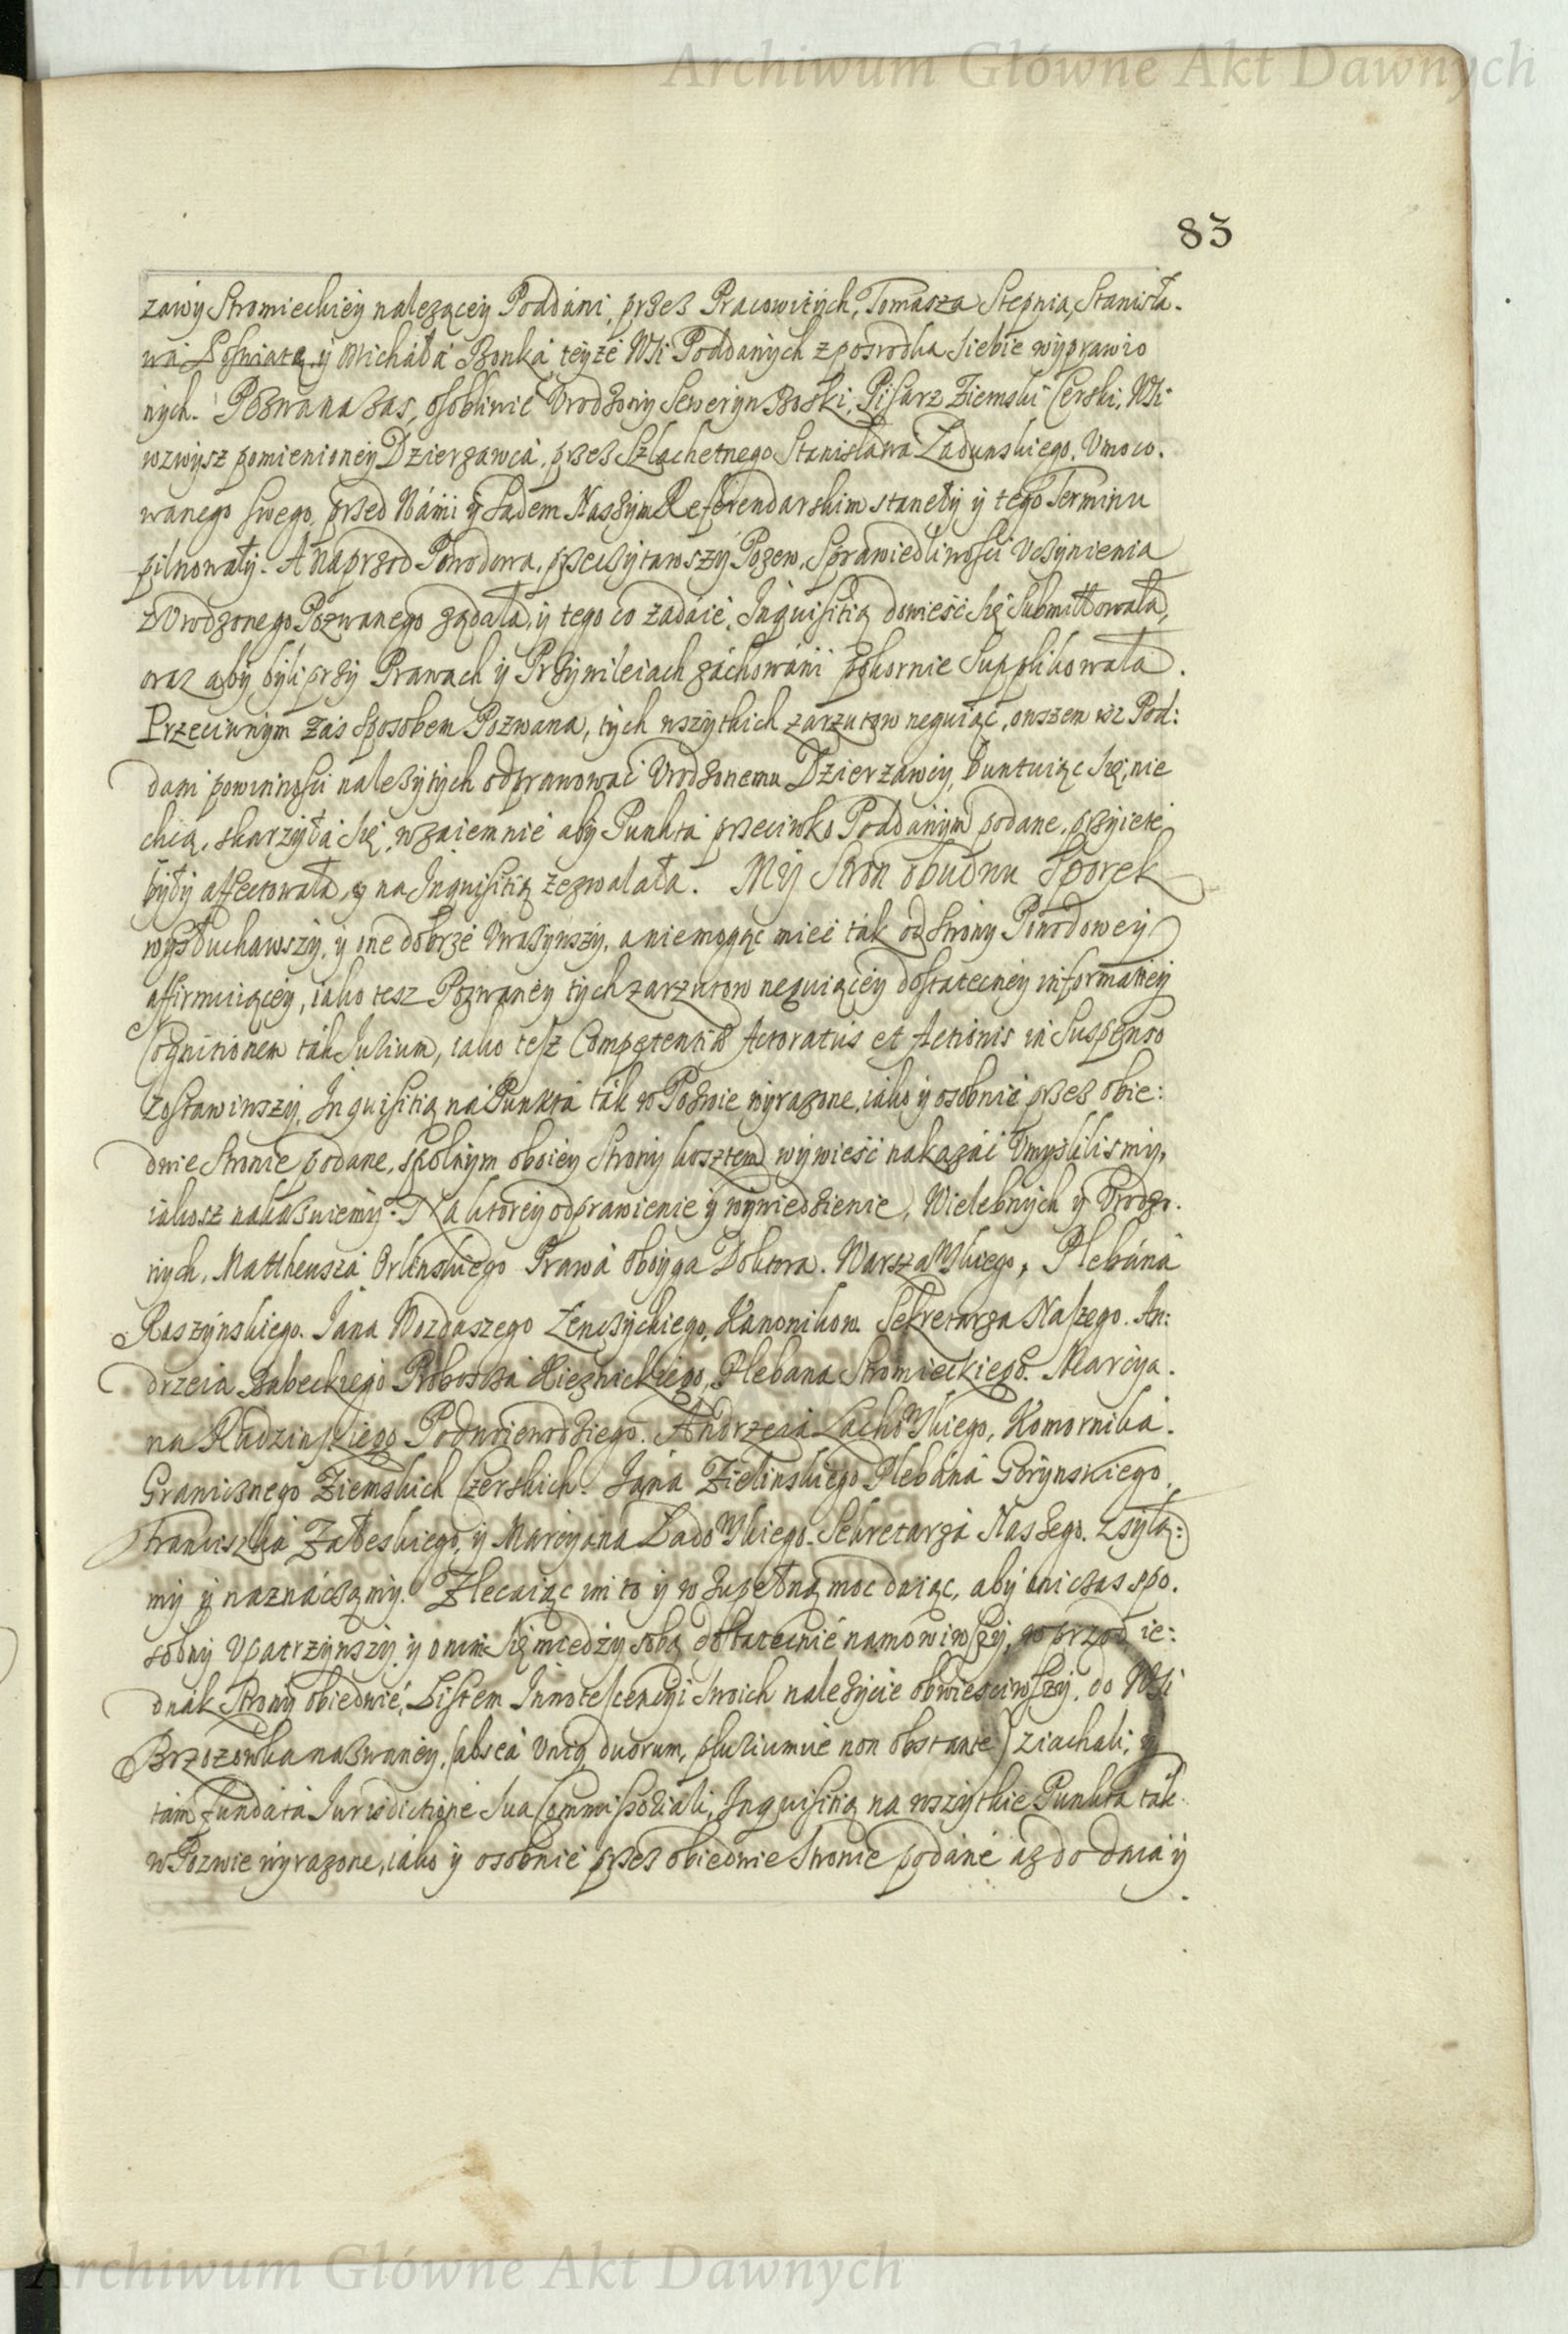 Archiwum Główne Akt Dawnych
83
zawy Stromieckiey nalezącey Poddani, przez Pracowitych, Tomasza Stepnia, Stanisła-
wa Łośniatę y Michała Bonka teyże Wsi Poddanych z posrodka siebie wyprawio
nych. Pozwana zas, osobliwie Urodzony Seweryn Boski, Pisarz Ziemski Cerski, Wsi
wzwysz pomienioney Dzierzawca, przez Szlachetnego Stanisława Zadunskiego, Umoco-
wanego swego, przed Nami y Sądem Naszym Referendarskim stanęły y tego Terminu
pilnowały. A naprzod Powodowa, przeczytawszy Pozew, Sprawiedliwości Uczynienia
z Urodzonego Pozwanego ządała, y tego co zadaie, Inquisitią dowieść się submittowała,
oraz aby byli przy Prawach y Przywileiach zachowani pokornie supplikowała.
Przeciwnym zas sposobem Pozwana, tych wszytkich zarzutow neguiąc, owszem isz Pod:
dani powinności nalezytych odprawować Urodzonemu Dzierzawcy, buntuiąc się, nie
chcą, skarzyła się, wzaiemnie aby Punkta przeciwko Poddanym podane, przyięte
były affectowała, y na Inquisitią zezwalała. My Stron obudwu Sporek
wysłuchawszy, y one dobrze uwazywszy, a niemogąc mieć tak od Strony Powodowey
affirmuiącey, iako tesz Pozwaney tych zarzutow neguiącey dostateczney informatiey
Cognitionem tak Iurium, iako tesz Competentiæ Actoratus et Actionis in Suspenso
zostawiwszy, Inquisitią na Punkta tak w Pozwie wyrazone, iako y osobnie przez obie:
dwie Stronie podane, spolnym oboiey Strony kosztem wywieść nakazać umyslilismy,
iakosz nakazuiemy. Na ktorey odprawienie y wywiedzienie, Wielebnych y Urodzo-
nych, Mattheusza Orlinskiego Prawa oboyga Doktora. Warszawskiego, Plebana
Raszynskiego. Jana Wozdaszego Łenczyckiego, Kanonikow. Sekretarza Naszego. An:
drzeia Babeckiego Proboszcza Kieznickiego, Plebana Stromieckiego. Marcya-
na Radzinskiego Podwoiewodziego. Andrzeia Lachowskiego, Komornika
Granicznego Ziemskich Czerskich. Jana Zielinskiego Plebana Gorynskiego,
Franciszka Załeskiego, y Marcyana Ładowskiego. Sekretarza Naszego. Zsyła:
my y naznaczamy. Zlecaiąc im to y w zupełną moc daiąc, aby oni czas spo-
sobny upatrzywszy y o nim się między sobą dostatecznie namowiwszy, wprzod ie:
dnak Strony obiedwie, Listem Innotescencyi swoich nalezycie obwiesciwszy, do Wsi
Brzozowka nazwaney, (absentia unius, duorum, pluriumve non obstante) ziachali, y
tam fundata Iurisdictione sua Commissoriali, Inquisitią na wszytkie Punkta tak
w Pozwie wyrazone, iako y osobnie przez obiedwie Stronie podane az do dnia y
Archiwum Główne Akt Dawnych